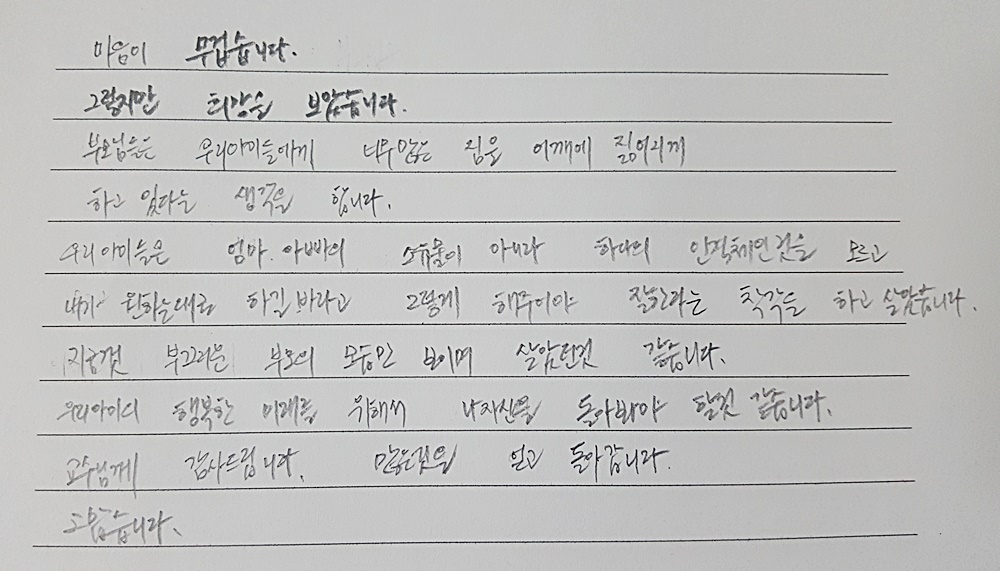 마음이 무겁습니다.
그렇지만 희망을 보았습니다.
부모님들은 우리아이들에게 너무많은 짐을 어깨에 짊어지게
하고 있다는 생각을 합니다.
우리아이들은 엄마.아빠의 소유물이 아니라 하나의 인격체인것을 모르고
내가 원하는대로 하길바라고 그렇게 해주어야 잘한다는 착각을 하고 살았습니다.
지금껏 부끄러운 부모의 모습만 보이며 살았던것 같습니다.
우리아이의 행복한 미래를 위해서 나자신을 돌아봐야 할것 같습니다.
교수님께 감사드립니다. 많은것을 얻고 돌아갑니다.
고맙습니다.